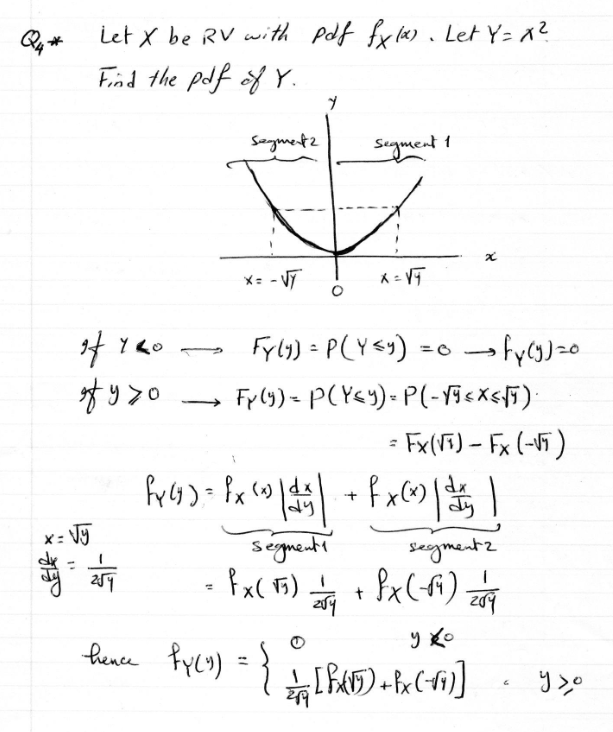 Q4* Let X be RV with pdf fX(x). Let Y = x²
Find the pdf of Y.
y
segment 2 segment 1
x
x = -√y x = √y
0
If Y < 0 → FY(y) = P(Y ≤ y) = 0 → fY(y) = 0
If y ≥ 0 → FY(y) = P(Y ≤ y) = P(-√y ≤ X ≤ √y).
= FX(√y) - FX(-√y)
fY(y) = fX(x) |dx/dy| + fX(x) |dx/dy|
segment 1 segment 2
x = √y
dx/dy = 1/2√y
= fX(√y) 1/2√y + fX(-√y) 1/2√y
hence fY(y) = { 0 y < 0
1/2√y [fX(√y) + fX(-√y)] . y ≥ 0